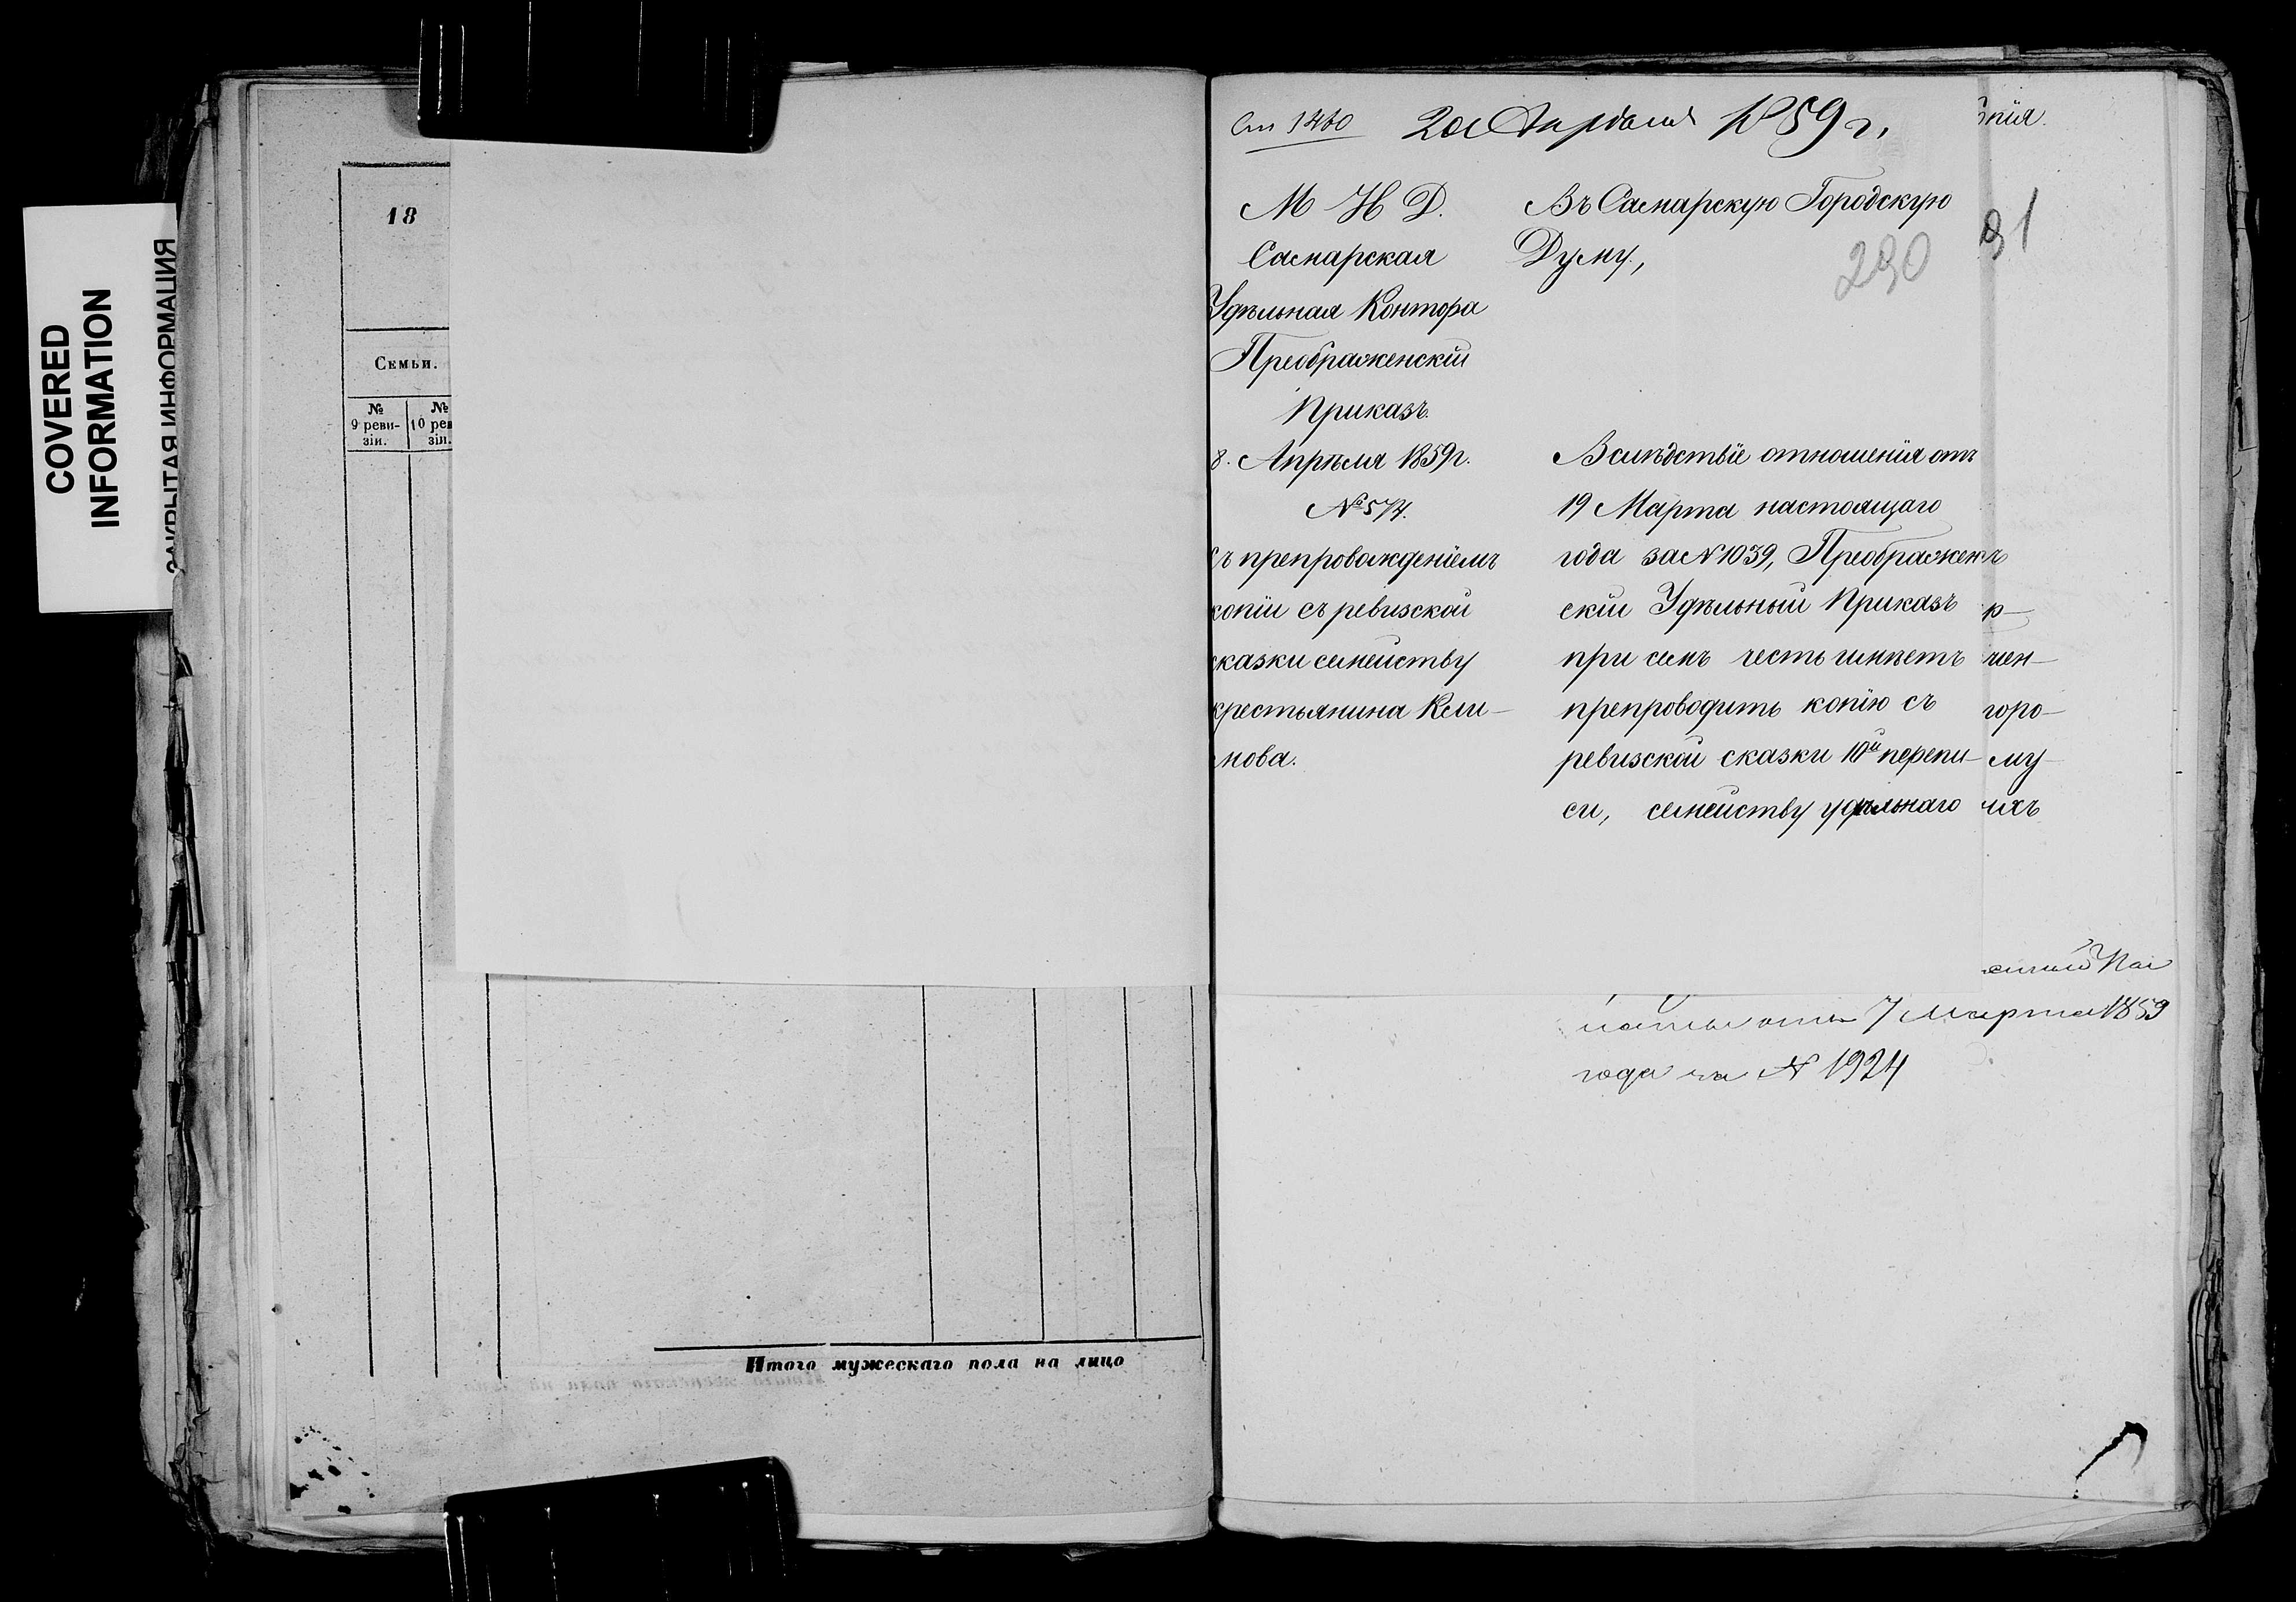 COVERED
INFORMATION
ЗАКРЫТАЯ ИНФОРМАЦИЯ
18
Семьи.
№
9 реви-
зіи.
№
10 рев
зіи.
Итого мужескаго пола на лицо
1460 20 Апрѣля 1859 г.
М И Д.
Самарская
Удѣльная Контора
Преображенскій
Приказъ.
8. Апрѣля 1859 г.
№ 574.
съ препровожденіемъ
копіи съ ревизской
сказки семейству
крестьянина Кли-
мова.
Въ Самарскую Городскую
Думу,
290
91
Вслѣдствіе отношенія отъ
19 Марта настоящаго
года за № 1039, Преображен
скій Удѣльный Приказъ
при семъ честь имѣетъ
препроводить копію съ
ревизской сказки 10й перепи-
си, семейству удѣльнаго
нія.
ъ
р-
чен-
горо-
му-
ихъ
7 Марта 1859
года за № 1924